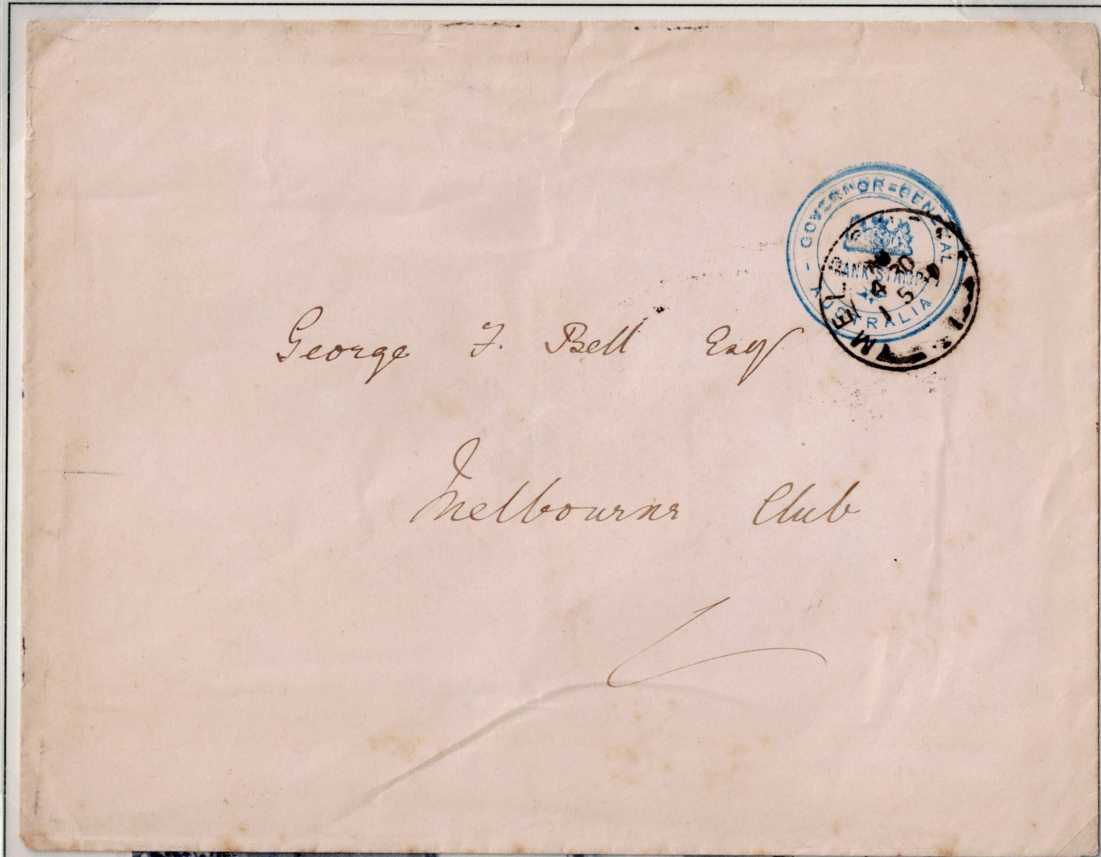 GOVERNOR=GENERAL
FRANK STAMP
AUSTRALIA
MELB
George F. Bell Esq
Melbourne Club